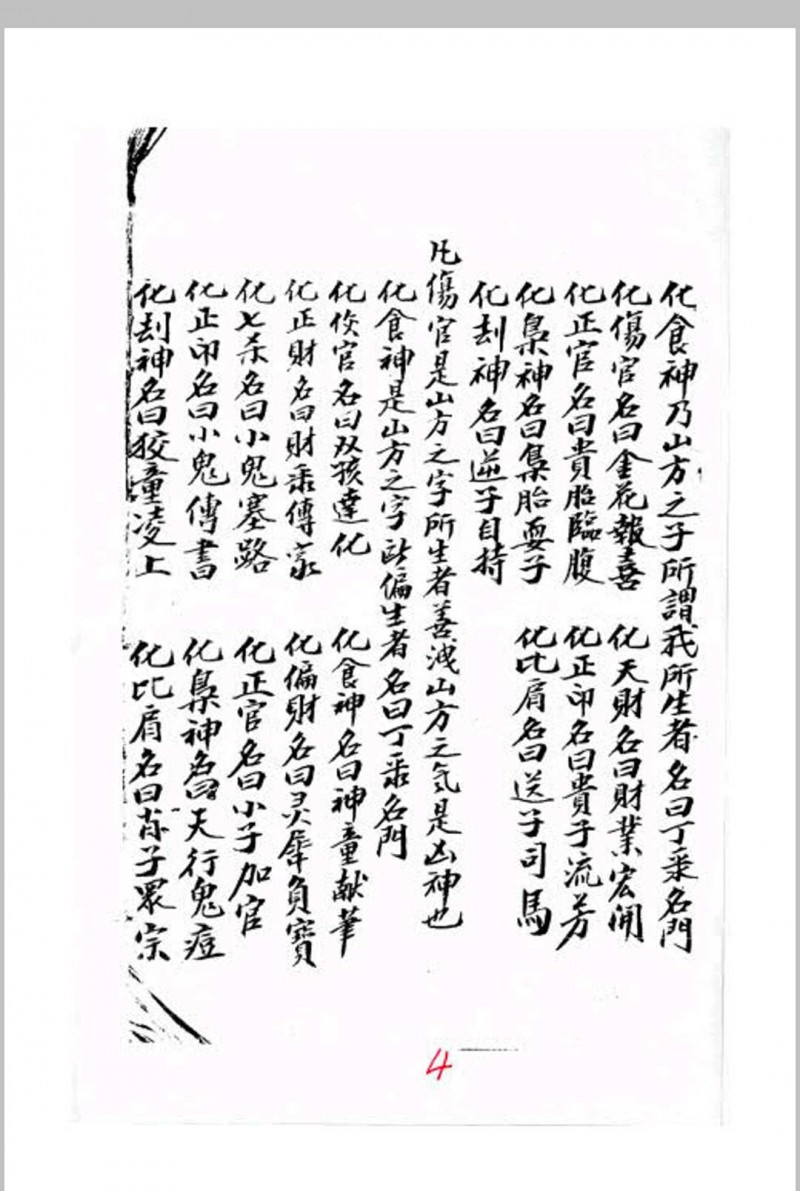 化食神乃山方之子所謂我所生者名曰丁秉名門
化傷官名曰金花報喜 化天財名曰財業宏開
化正官名曰貴胎臨腹 化正印名曰貴子流芳
化梟神名曰集胎耍子 化比肩名曰送子司馬
化刦神名曰逆子自持
凡傷官是山方之字所生者善洩山方之気是凶神也
化食神是山方之字所偏生者名曰丁秉名門
化傷官名曰双孩達化 化食神名曰神童献筆
化正財名曰財秉傳家 化偏財名曰灵犀負寶
化七杀名曰小鬼塞路 化正官名曰小子加官
化正印名曰小鬼傳書 化梟神名曰天行鬼痘
化刦神名曰狡童凌上 化比肩名曰肖子眾宗
4